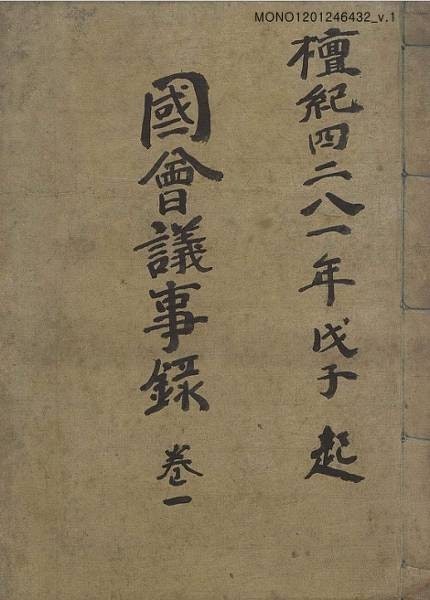 MONO1201246432_v.1
檀紀四二八一年戊子 起
國會議事錄 卷一